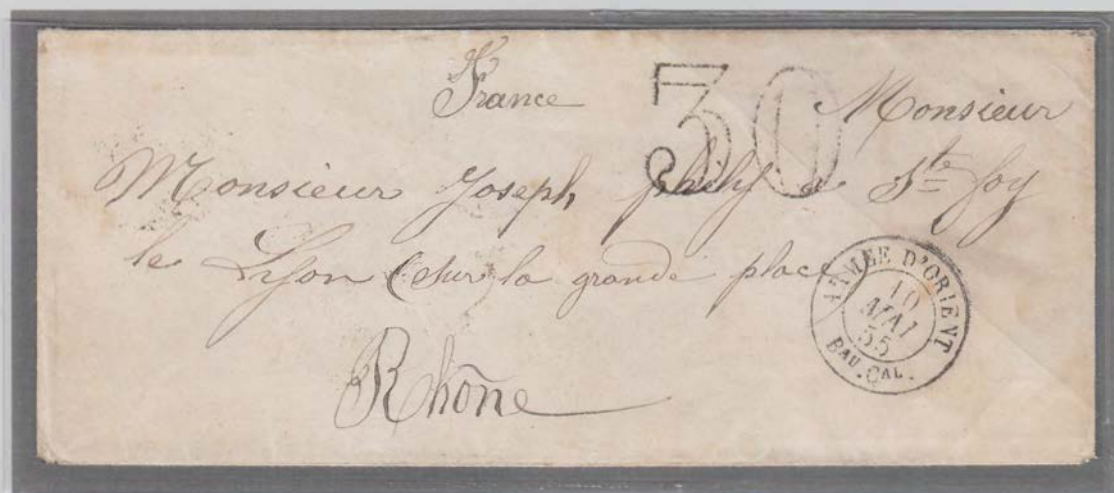 France
30
Monsieur
Monsieur Joseph philip a Ste foy
le Lyon (sur la grande place
Rhône
ARMÉE D'ORIENT
10
MAI
55
BAU. CAL.